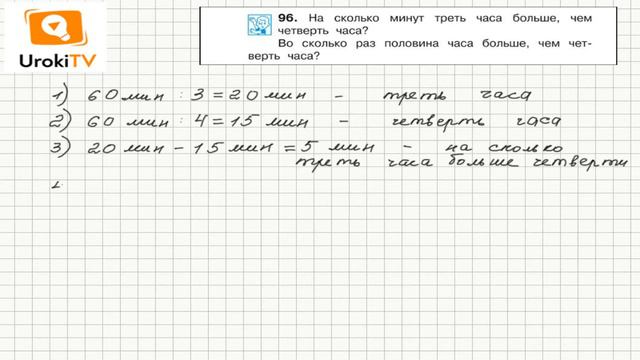 UrokiTV
96. На сколько минут треть часа больше, чем
четверть часа?
Во сколько раз половина часа больше, чем чет-
верть часа?
1) 60 мин : 3 = 20 мин - треть часа
2) 60 мин : 4 = 15 мин - четверть часа
3) 20 мин - 15 мин = 5 мин - на сколько
треть часа больше четверти